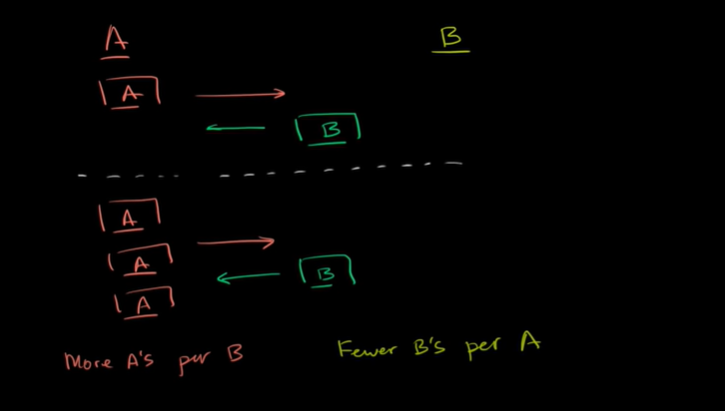 A B
A
B
A
A
B
A
More A's per B Fewer B's per A